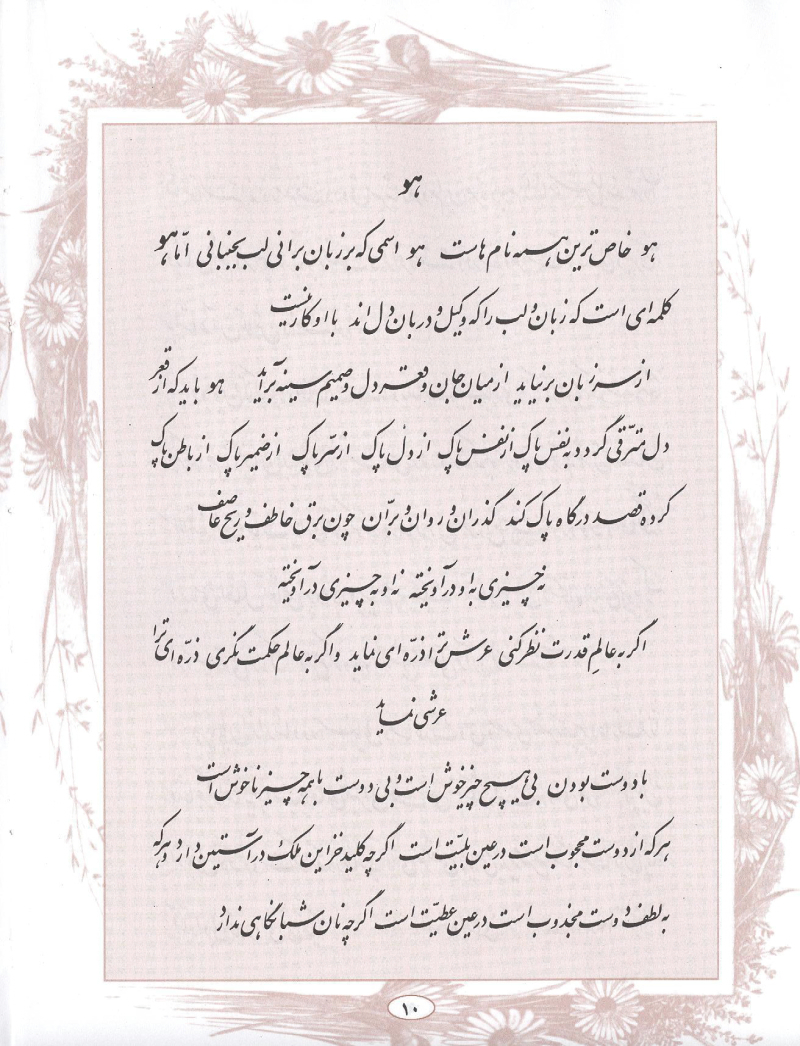 هو
هو خاص ترین همه نام هاست هو اسمی که بر زبان برانی لب بجنبانی امّا هو
کلمه ای است که زبان و لب را که وکیل و دربان دل اند با او کار نیست
از سر زبان برنیاید از میان جان و قعر دل و صمیم سینه برآید هو باید که از قعر
دل مترّقی گردد به نفس پاک از نفس پاک از دل پاک از سّر پاک از ضمیر پاک از باطن پاک
کرده قصد درگاه پاک کند گذران و روان و برّان چون برق خاطف و ریح عاصف
نه چیزی به او درآویخته نه او به چیزی درآویخته
اگر به عالمِ قدرت نظر کنی عرش ترا ذرّه ای نماید و اگر به عالم حکمت نگری ذرّه ای ترا
عرشی نماید
با دوست بودن بی هیچ چیز خوش است و بی دوست با همه چیز ناخوش است
هرکه از دوست محجوب است در عین بلیّت است اگر چه کلید خزاین ملک در آستین دارد و هرکه
به لطف دوست مجذوب است در عین عطیّت است اگر چه نان شبانگاهی ندارد
۱۰